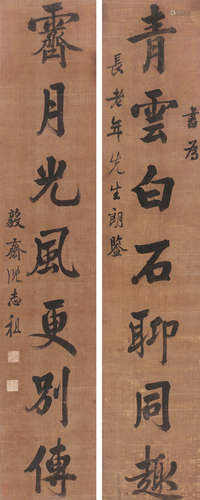 青雲白石聊同趣
書為
長老年先生朗鑒
霽月光風更別傳
毅齋沈志祖